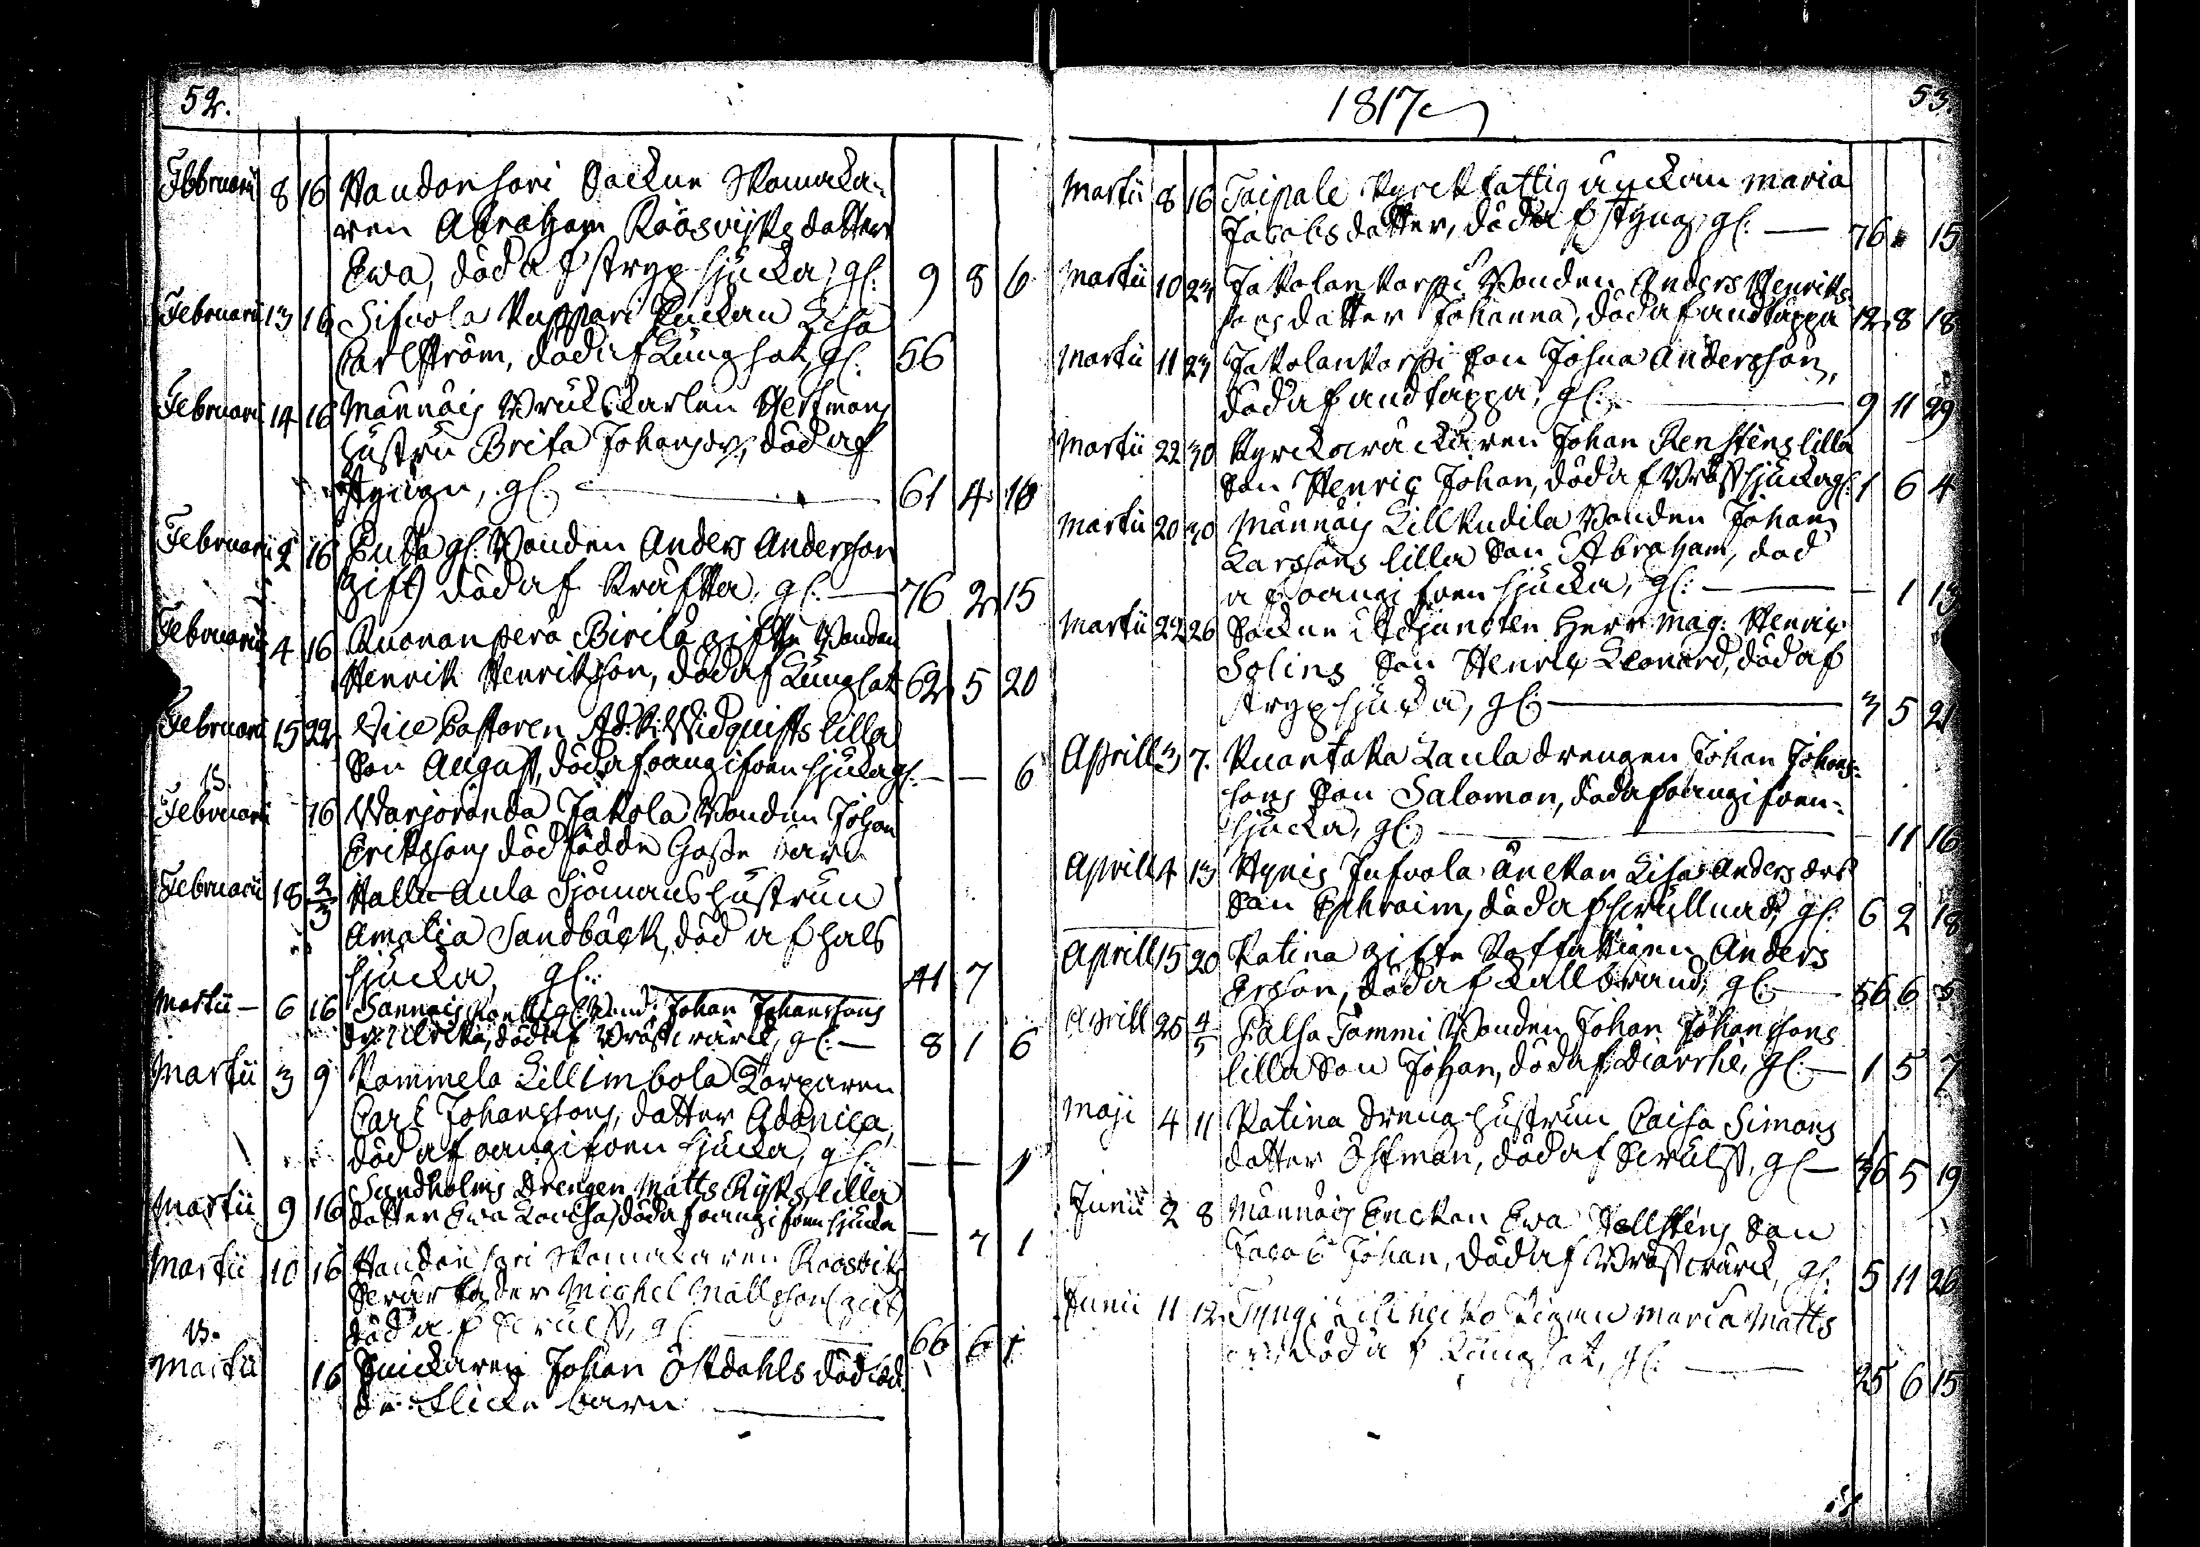 52.
Februarii 8 16 Handonsari Sockne Skomaka-
ren Abraham Röösvijks datter
Ewa, död af strypsjuka, gl: 9 8 6
Februarii 13 16 Sifvola Enckan Lisa
Carlström, död af Lungsot, gl: 56
Februarii 14 16 Männäis Brukskarlen Hertmans
hustru Brita Johansdr, död af
styngn, gl: 61 4 18
Februarii 2 16 gl. Bonden Anders Andersson
gift) död af kräfta, gl: 76 2 15
Februarii 4 16 Ruonanperä Birilä gifte Bonden
Henrik Henriksson, död af Lungsot 62 5 20
Februarii 15 22 Vice Pastoren Ad: Widquists lilla
Son August, död af oangifven sjuka gl: — — 6
Februarii 16 Warjoranda Jakola Bonden Johan
Erikssons dödfödde Gosse barn
Februarii 18 2/3 Halli-Aula Sjömans hustrun
Amalia Sandbäck, död af hals
sjuka, gl: 41 7
Martii — 6 16 Sannais Bond: Johan Johanssons
dr Ulrika, död af Bröstvärck, gl: — 8 1 6
Martii 3 9 Pommela Lillimbola Torparen
Carl Johanssons, datter Adonica,
död af oangifven sjuka, gl: — — 1
Martii 9 16 Sandholms Drengen Matts Ryks lilla
datter Ewa Lovisa, död af oangifven sjuka — 7 1
Martii 10 16 Handonsari Skomakaren Röösviks
Svärfader Michel Mattsson (gift)
död af Svulst, gl: 66 6 1
Martii 16 Snickaren Johan Östdahls dödföd-
de Flicke barn —
1817 53.
Martii 8 16 Taipale Kyrckfattig änckan Maria
Jacobsdatter, död af styng, gl: — 76 15
Martii 10 23 Jakolankorpi Bonden Anders Henriks-
sons datter Johanna, död af andtäppa 12 8 18
Martii 11 23 Jakolankorpi Son Josua Andersson,
död af andtäppa, gl: — 9 11 29
Martii 22 30 Kyrckoväcktaren Johan Renstens lilla
Son Henric Johan, död af Bröstsjuka gl: 1 6 4
Martii 20 30 Männäis Lill Kudila Bonden Johan
Larssons lilla Son Abraham, död
af oangifven sjuka, gl: — — 1 13
Martii 22 26 Sockne Adjuncten Herr Mag: Henric
Solins Son Henric Leonard, död af
strypsjuka, gl: — 3 5 21
Aprill 3 7. Ruantaka Laula drengen Johan Johans-
sons Son Salomon, död af oangifven-
sjuka, gl: — 11 16
Aprill 4 13 Hynis Jufvola Änckan Lisa Anders dr
Son Ephraim, död af svullnad, gl: 6 2 18
Aprill 15 20 Katina gifte Rotfattigen Anders
Ersson, död af kallbrand, gl: — 56 6 5
Aprill 26 4/5 Palsa Tommi Bonden Johan Johanssons
lilla Son Johan, död af Diarrhé, gl: — 1 5 7
Maji 4 11 Katina dreng hustrun Caisa Simons
datter Östman, död af Svulst, gl — 36 5 19
Junii 2 8 Männäis Enckan Ewa Hellstens Son
Jacob Johan, död af Bröstvärck, gl: 5 11 26
Junii 11 12 Pigan Maria Matts
dr, död af Lungsot, gl: — 25 6 15